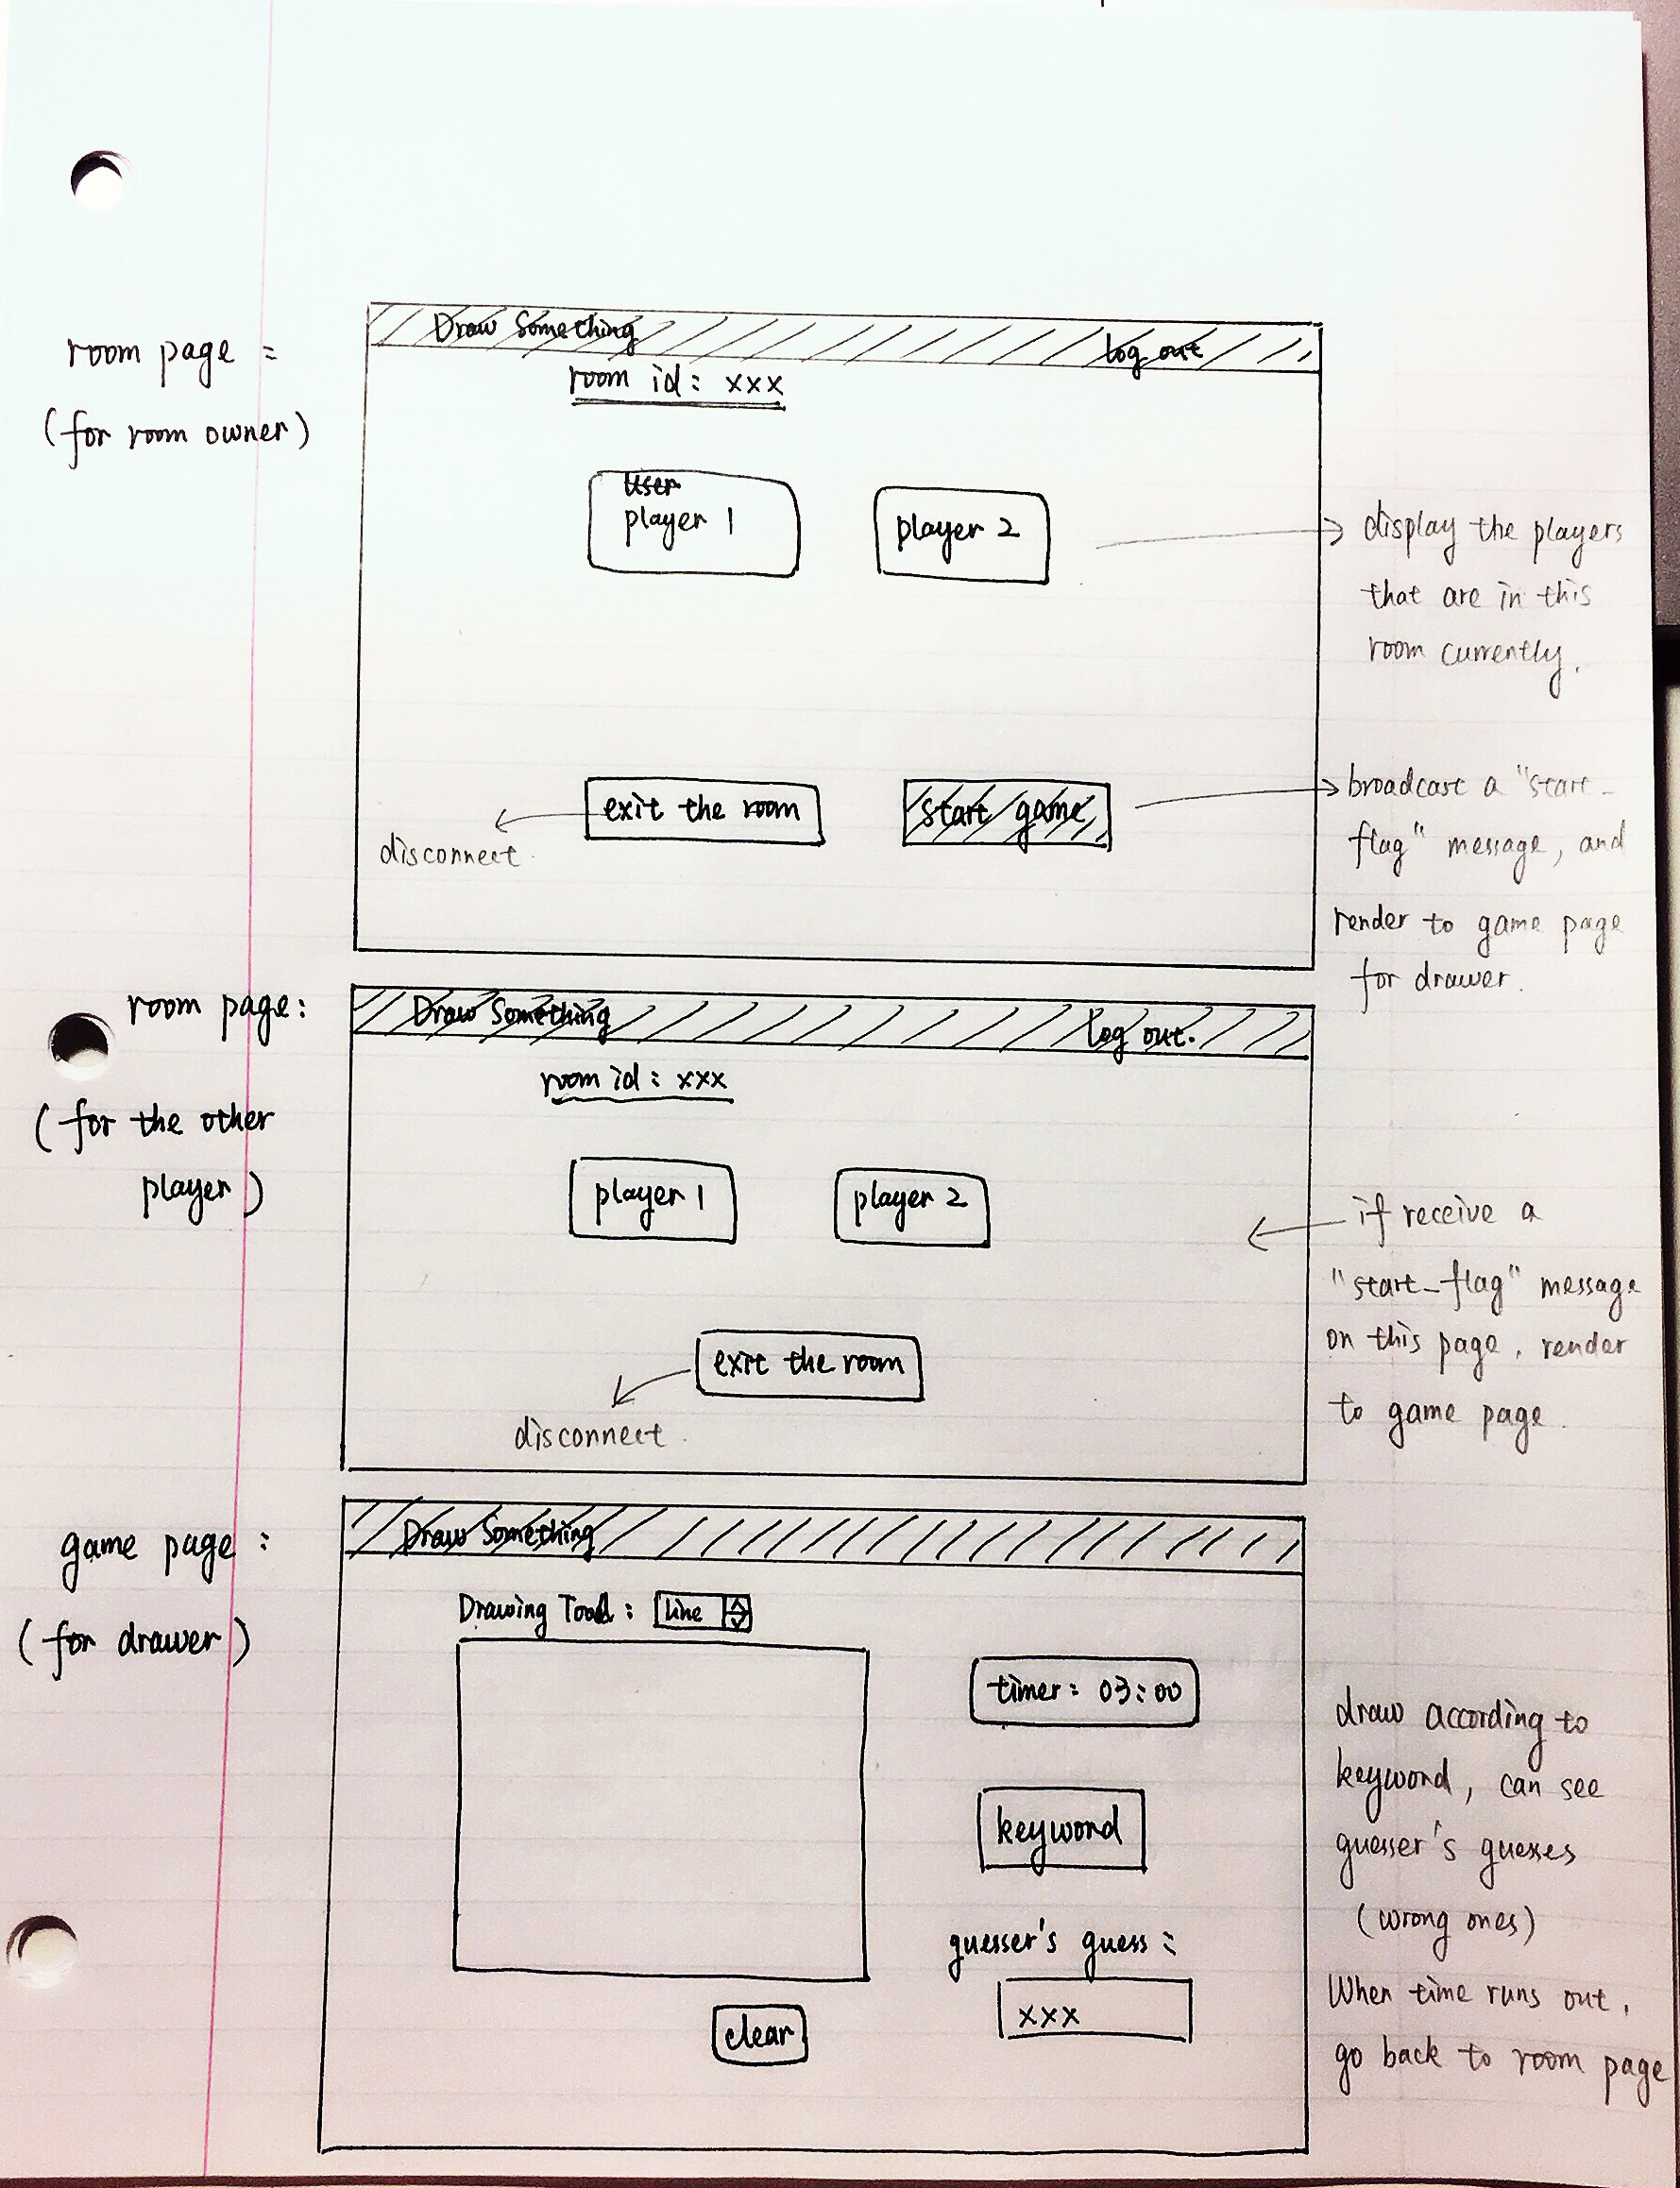 room page :
(for room owner)
Draw Something
log out
room id: xxx
User
player 1
player 2
display the players
that are in this
room currently.
exit the room
start game
disconnect.
broadcast a "start_
flag" message, and
render to game page
for drawer.
room page:
(for the other
player)
Draw Something
log out.
room id: xxx
player 1
player 2
if receive a
"start_flag" message
on this page, render
to game page.
exit the room
disconnect.
game page :
(for drawer)
Draw Something
Drawing Tools: line
timer: 03:00
keyword
guesser's guess:
xxx
clear
draw according to
keyword, can see
guesser's guesses
(wrong ones)
When time runs out,
go back to room page